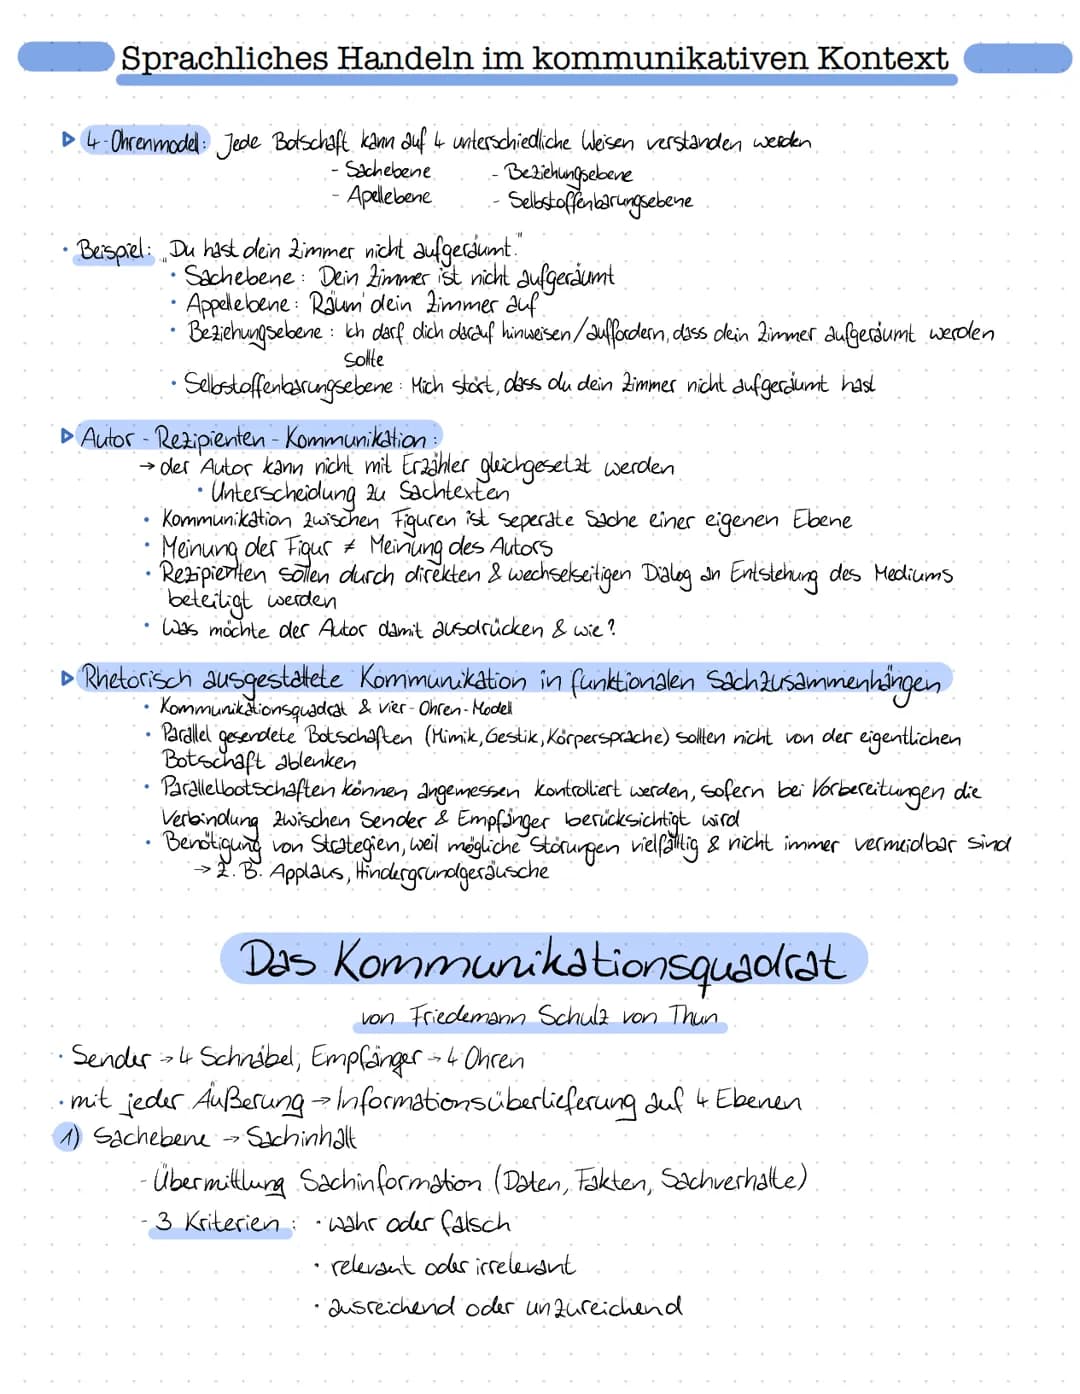 Sprachliches Handeln im kommunikativen Kontext
▷ 4-Ohrenmodel: Jede Botschaft kann auf 4 unterschiedliche Weisen verstanden werden
- Sachebene - Beziehungsebene
- Apellebene - Selbstoffenbarungsebene
• Beispiel: „Du hast dein Zimmer nicht aufgeräumt."
• Sachebene: Dein Zimmer ist nicht aufgeräumt
• Appellebene: Räum' dein Zimmer auf
• Beziehungsebene: Ich darf dich darauf hinweisen/auffordern, dass dein Zimmer aufgeräumt werden
sollte
• Selbstoffenbarungsebene: Mich stört, dass du dein Zimmer nicht aufgeräumt hast
▷ Autor-Rezipienten-Kommunikation:
→ der Autor kann nicht mit Erzähler gleichgesetzt werden
• Unterscheidung zu Sachtexten
• Kommunikation zwischen Figuren ist seperate Sache einer eigenen Ebene
• Meinung der Figur ≠ Meinung des Autors
• Rezipienten sollen durch direkten & wechselseitigen Dialog an Entstehung des Mediums
beteiligt werden
• Was möchte der Autor damit ausdrücken & wie?
▷ Rhetorisch ausgestattete Kommunikation in funktionalen Sachzusammenhängen
• Kommunikationsquadrat & Vier-Ohren-Modell
• Parallel gesendete Botschaften (Mimik, Gestik, Körpersprache) sollten nicht von der eigentlichen
Botschaft ablenken
• Parallelbotschaften können angemessen kontrolliert werden, sofern bei Vorbereitungen die
Verbindung zwischen Sender & Empfänger berücksichtigt wird
• Benötigung von Strategien, weil mögliche Störungen vielfältig & nicht immer vermeidbar sind
→ z. B. Applaus, Hindergrundgeräusche
Das Kommunikationsquadrat
von Friedemann Schulz von Thun
• Sender → 4 Schnäbel, Empfänger → 4 Ohren
• mit jeder Äußerung → Informationsüberlieferung auf 4 Ebenen
1) Sachebene → Sachinhalt
- Übermittlung Sachinformation (Daten, Fakten, Sachverhalte)
- 3 Kriterien: • wahr oder falsch
• relevant oder irrelevant
• ausreichend oder unzureichend